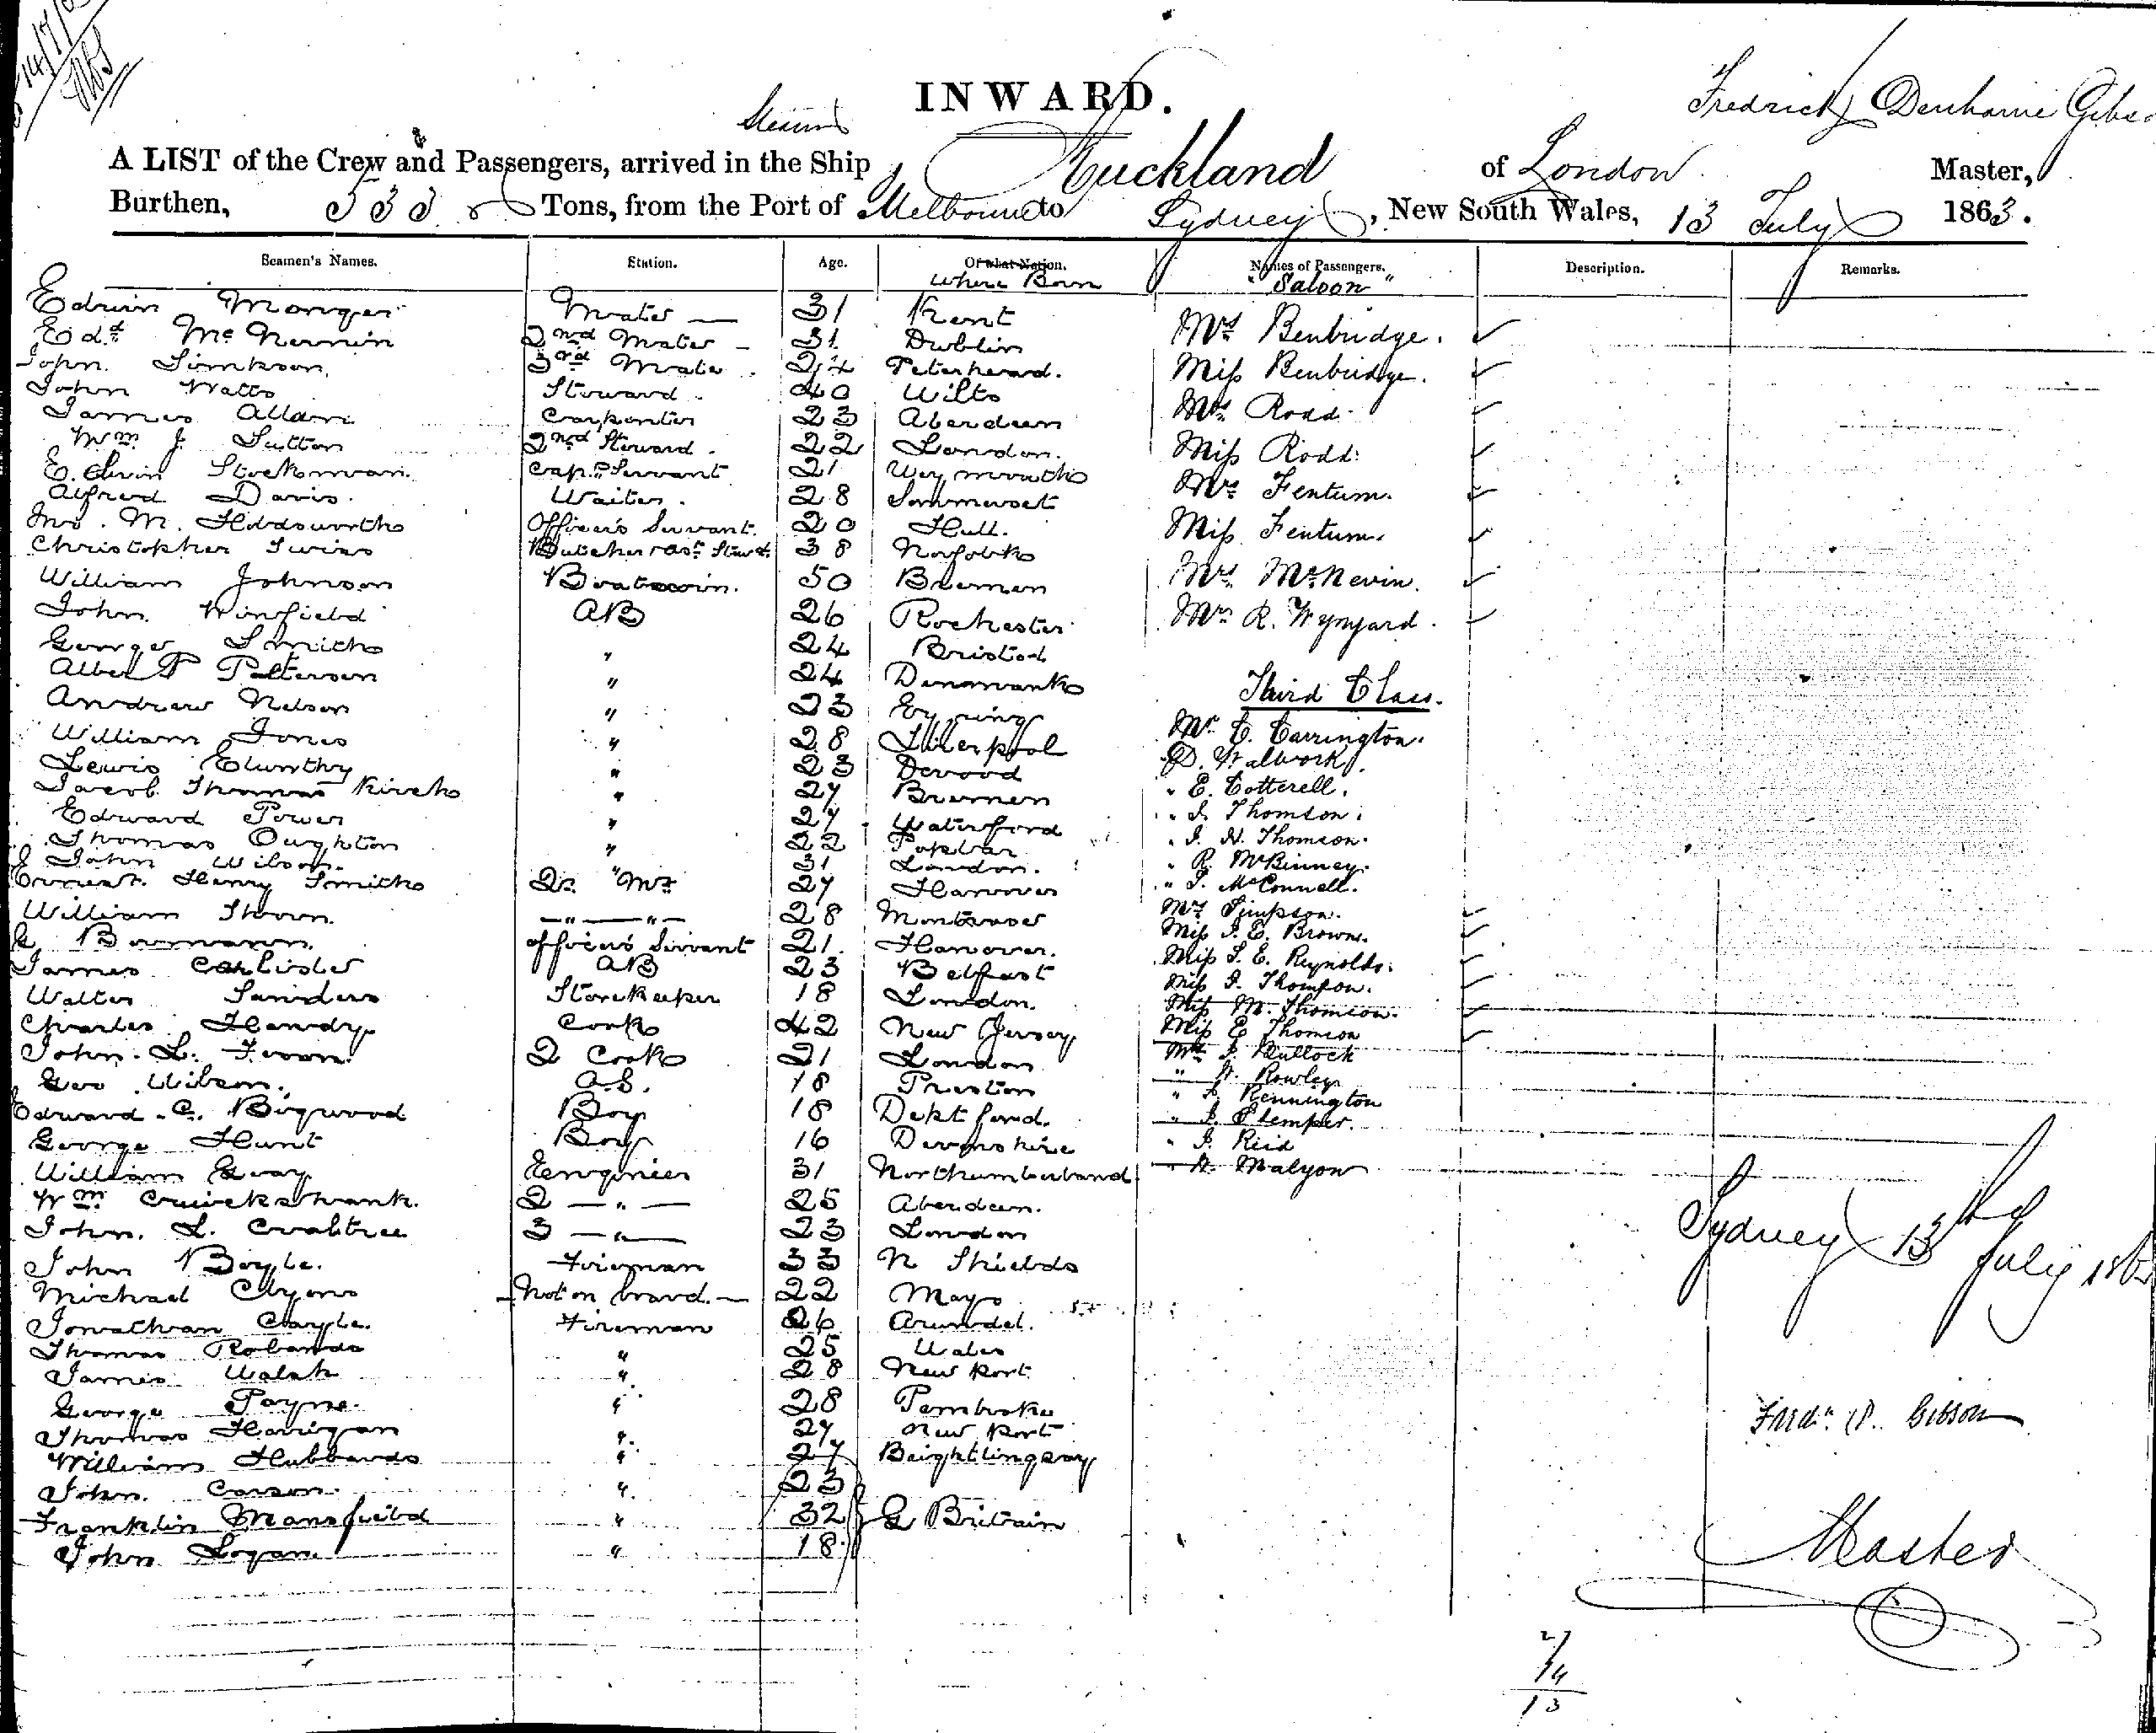 14/7/63
INWARD.
Fredrick Denham Gibson
Steam
A LIST of the Crew and Passengers, arrived in the Ship Auckland of London Master,
Burthen, 533 Tons, from the Port of Melbourne to Sydney, New South Wales, 13 July 1863.
Seamen's Names. Station. Age. Of what Nation. Names of Passengers. Description. Remarks.
Where Born "Saloon"
Edwin Monger Mate 31 Kent
Edd. McNernin 2nd Mate 31 Dublin Mrs Benbridge.
John Simkson 3rd Mate 24 Peterhead. Miss Benbridge.
John Watts Steward 40 Wilts
James Allan Carpenter 23 Aberdeen Mrs Rodd
Wm J. Sutton 2nd Steward 22 London. Miss Rodd
Edwin Stockman. Capts Servant 21 Weymouth Mrs Fentum.
Alfred Davis. Waiter. 28 Sommerset
Jno. M. Holdsworth Officers Servant. 20 Hull. Miss Fentum.
Christopher Twiss Butcher & Asst Stewd 38 Norfolk
William Johnson Boatswain. 50 Bremen Mrs McNevin.
John Winfield AB 26 Rochester Mrs R. Wynyard.
George Smith " 24 Bristol
Albert P Petterson " 24 Denmark Third Class.
Andrew Nelson " 23
William Jones " 28 Liverpool Mr C. Carrington.
Lewis " 23 D. Walwork
Jacob Thomas Kirch " 27 Bremen " E. Cotterell.
Edward Power " 27 Waterford " J. Thomson.
Thomas Oughton " 22 Poplar " J. H. Thomson.
John Wilson. " 31 London. " R. McBinney.
Ernest Henry Smith Qr Mr 27 Hanover " J. McConnell.
William Thorn. " " 28 Montrose Mrs Simpson.
G Bormann. officers Servant 21 Hanover. Miss J. E. Brown.
James Carlisle AB 23 Belfast Miss S. E. Reynolds.
Walter Sanders Storekeeper 18 London. Miss J. Thompson.
Charles Hendy Cook 42 New Jersey Miss M. Thomson.
John. L. 2 Cook 21 London Miss E Thomson
Geo Wilson. O.S. 18 Preston Mr J. Bullock
Edward. C. Bigwood Boy 18 Deptford. " W. Rowley
George Hunt Boy 16 Devonshire " Rennington
William Gray Eenginier 31 Northumberland " J. Stemper.
Wm Cruickshank. 2 — " — 25 Aberdeen. " J. Reid
John. L. Crabtree 3 — " — 23 London " W. Malyon
John Boyle. Fireman 33 N Shields
Michael Clyons Not on board. 22 Mayo
Jonathan Clayle. Fireman 26 Arundel.
Thomas Robands " 25 Wales
James Walsh " 28 New port
George Payne. " 28 Pembroke
Thomas Harrigan " 27 New port
William Hubbards " 27 Brightlingsay
John. Carson. " 23
Franklin Mansfield " 32 G Britain
John Logan. " 18
Sydney 13th July 1863
Fredk D. Gibson
Master
2/
/4
13